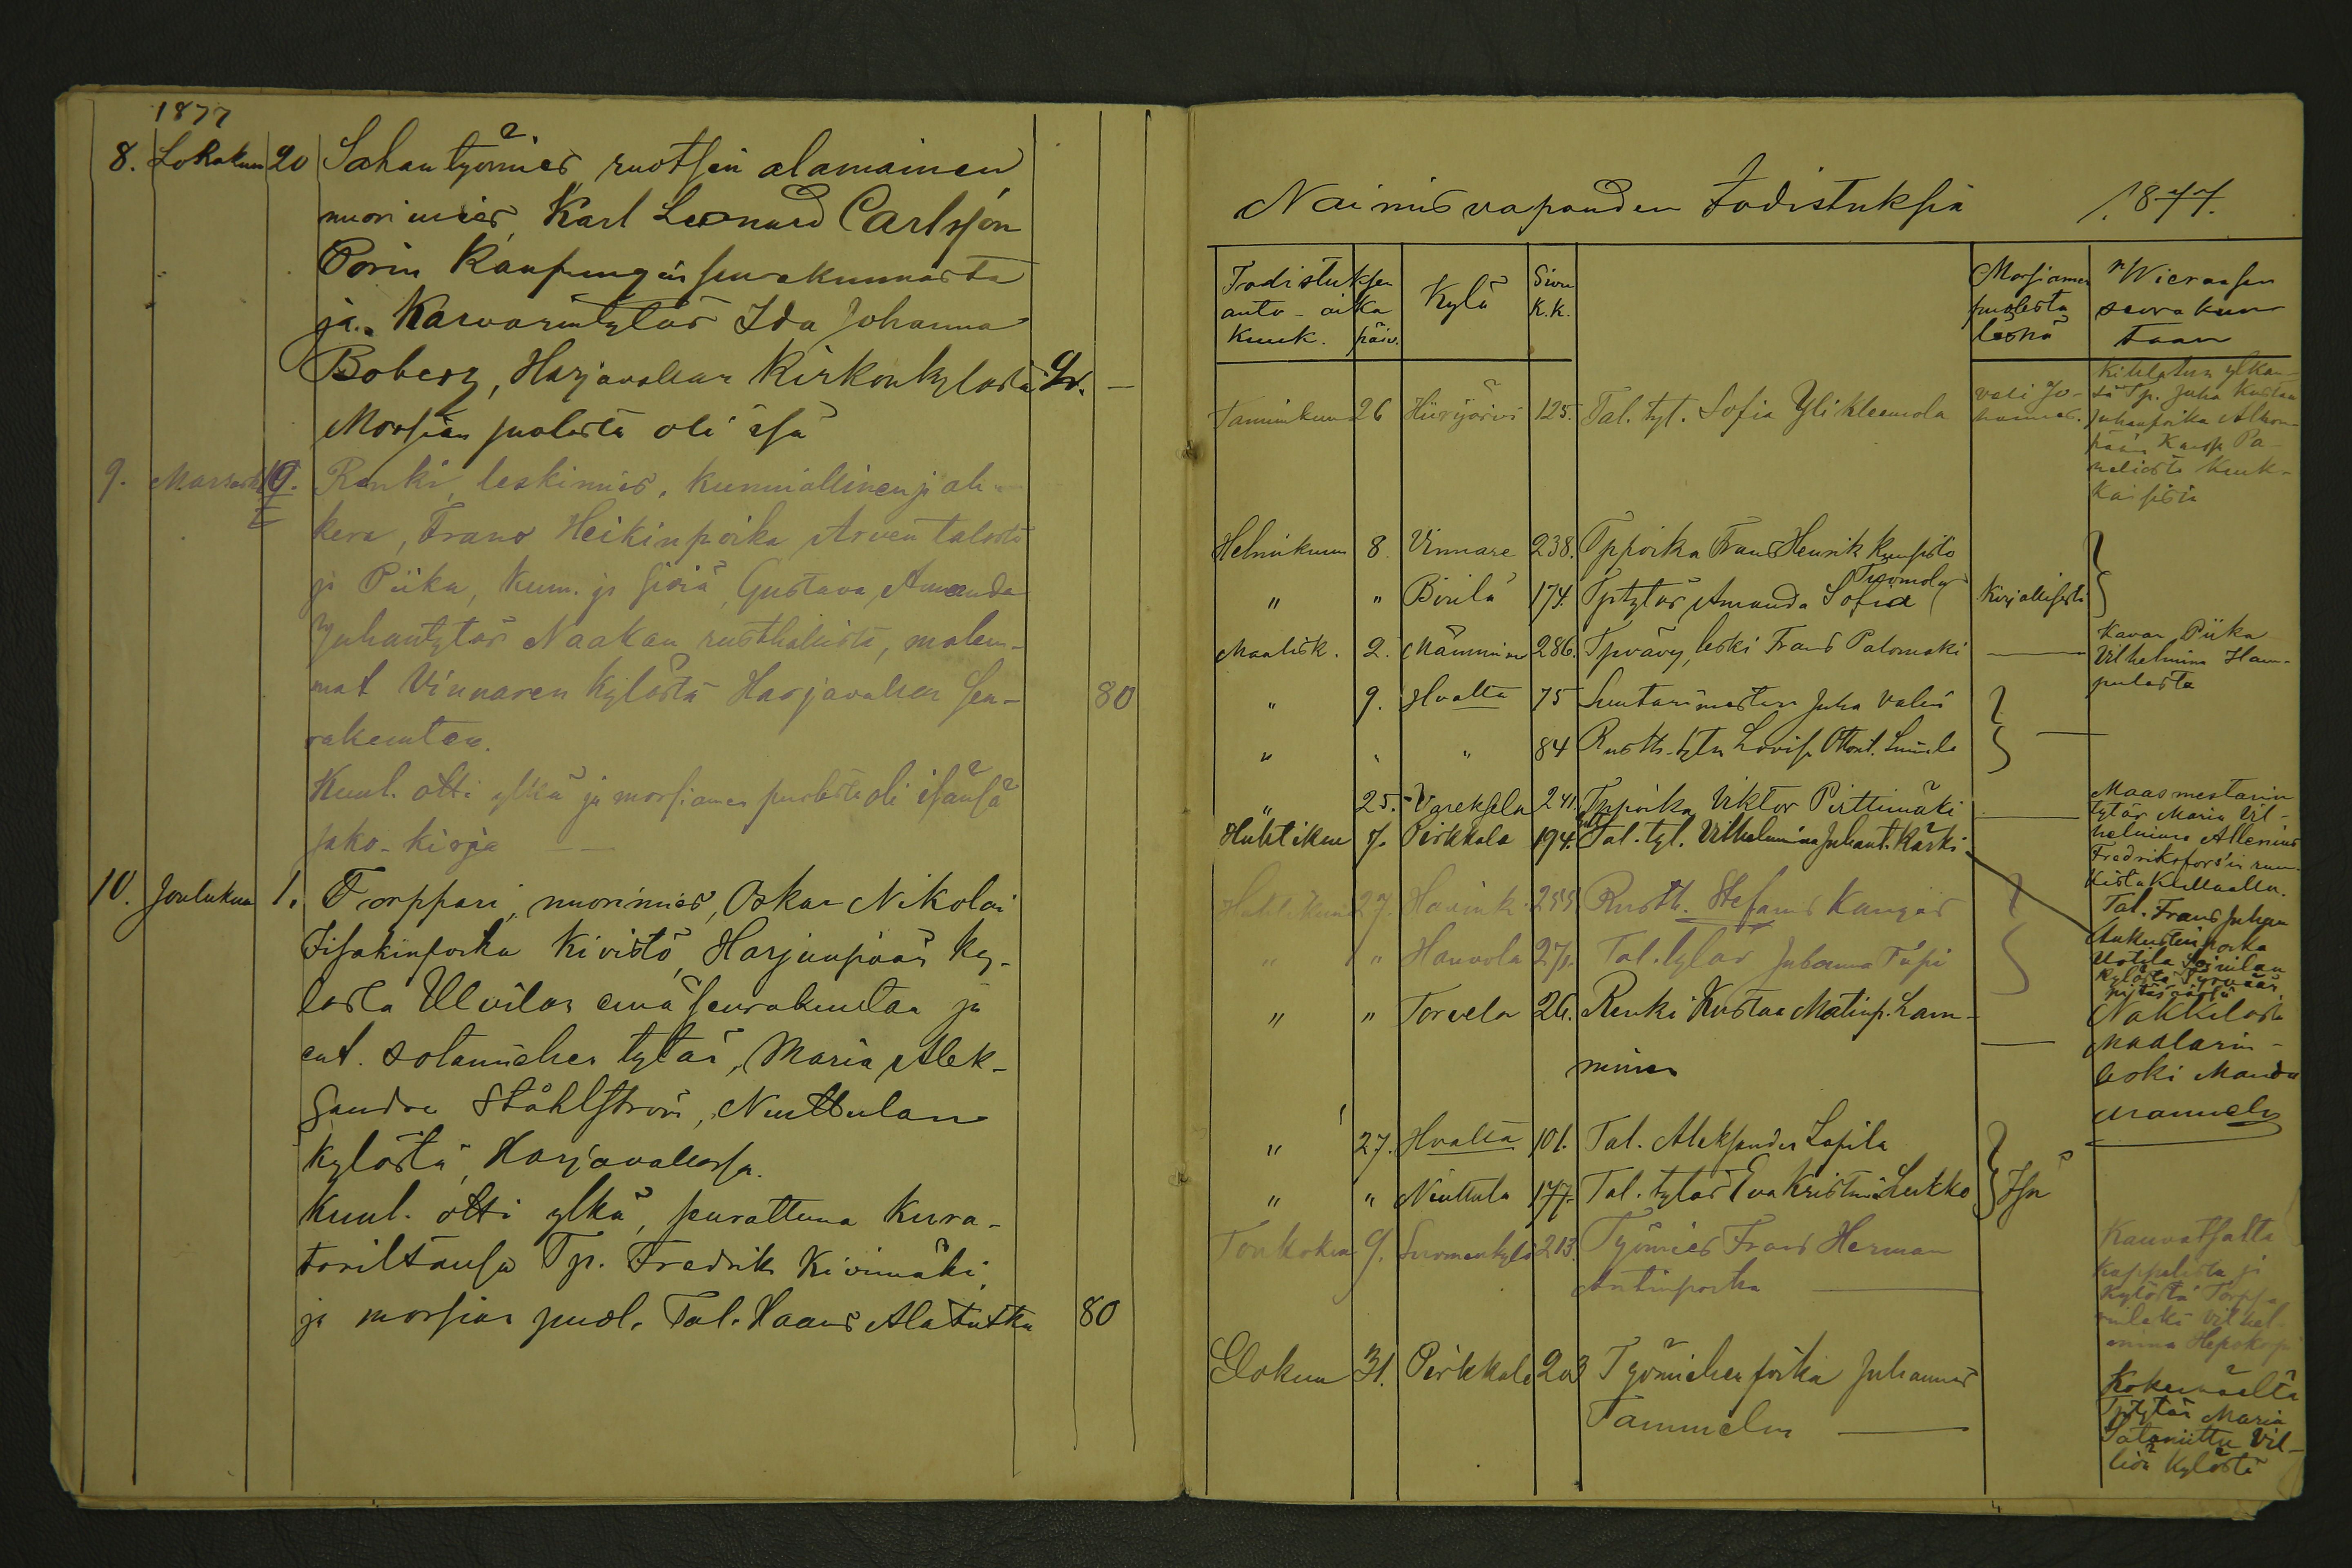 1877
8. Lokakuu 20 Sahan työmies ruotsin alamainen
nuorimies, Karl Leonard Carlsson
Porin Kaupungin seurakunnasta
ja Karvarintytär Ida Johanna
Boberg, Harjavallan Kirkonkylästä
Morsian puolesta oli isä
9. Renki, leskimies, kunniallinen ja
kera, Frans Heikinpoika Arven talosta
ja Piika, kunn. ja siviä, Gustava Amanda
Juhantytär Naakan rusthollista, molem-
mat Vinnaren kylästä Harjavallan Seu- 80
rakuntaa.
Kuul. otti ylkä ja morsiamen puolesta oli isänsä
jako-kirja
10. Joulukuu 1. Torppari, nuorimies, Oskar Nikolai
Iisakinpoika Kivistö, Harjunpään ky-
lästä Ulvilan emä seurakuntaa ja
ent. sotamiehen tytär, Maria Alek-
sandra Ståhlström, Niuttulan
kylästä, Harjavallassa.
Kuul. otti ylkä, seurattuna kura-
toriltansa Tp. Fredrik Kivimäki,
ja morsian puol. Tal. Haans Alatutka 80
Naimisvapauden todistuksia 1877.
Todistuksen
anto-aika
Kuuk. päiv.
Kylä
Sivu
K.K.
Morsiamen
puolesta
läsnä
Wieraasen
seurakun
taan
Tammikuu 26 Hiirijärvi 125. Tal. tyt. Sofia Yli Kleemola
veli Jo-
hannes.
Tp. Juha Kustaa
Juhanpoika
Kaup Pa-
nelista Kiuk-
kaisista
Helmikuu 8. Vinnare 238. Tppoika Frans Henrik Kuusisto
" " Pirilä 174. Tptytär Amanda Sofia Tuomola Kirjallisesti
Maalisk. 2. Mämminen 286. Tpvävy, leski Frans Palomäki —
Kavan Piika
Vilhelmina Ham-
pulasta
" 9. Hvalta 75 Suutarimestari Juha Valin
" " " 84 Rusth. tytär Lovisa Ottont. Suinila —
" 25. Vareksela 241. Tppoika Viktor Pirttimäki —
Maasmestarin
tytär Maria Vil-
helmina Allenius
Fredriksfors'in ruu-
kista Kullaalla.
Huhtikuu 7. Pirkkala 194. Tal. tyt. Vilhelmina Juhant. Käski
Tal. Frans Juhan
Aukustinpoika
Uotila Soinilan
kylästä Tyrvään
pitäjästä
Huhtikuu 27. Havinki 255. Rusth. Stefanus Kangas
" " Hauvola 271. Tal. tytär Johanna Tiipi
" " Torvela 26. Renki Kustaa Matinp. Lam-
minen —
Nakkilasta
Maalarin-
leski Manda
Mannelin
" 27. Hvalta 101. Tal. Aleksander Lapila
" " Niuttula 177. Tal. tytär Eva Kristina Lukko Isä
Toukokuu 9. Suomenkylä 213. Työmies Frans Herman
Antinpoika —
Kauvatsalta
Kappelista ja
kylästä Torppa
Vilhel-
mina
Elokuu 31. Pirkkala 203 Työmiehen poika Juhannes
Tammelin —
Kokemäeltä
Tptytär Maria
Sataniittu Vil-
liön kylästä